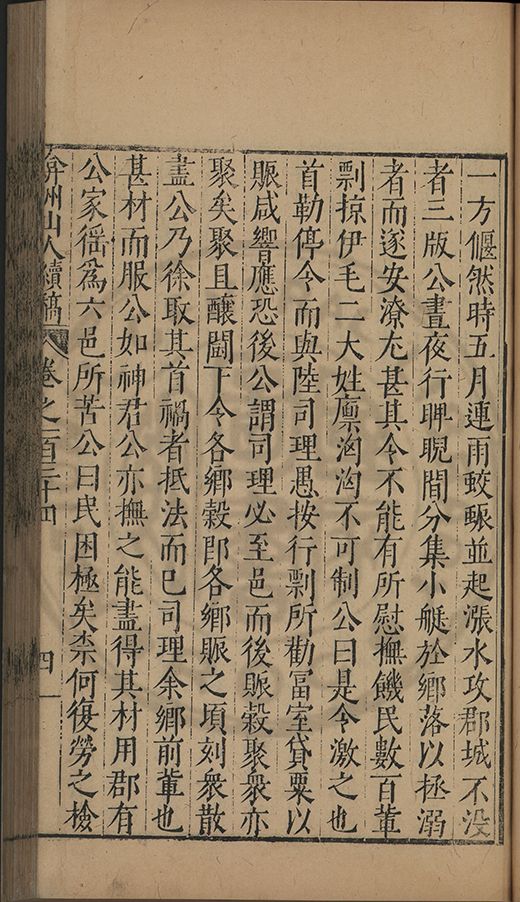 一方偃然時五月連雨蛟蜃並起漲水攻郡城不没
者三版公晝夜行睥睨間分集小艇於鄉落以拯溺
者而遂安潦尤甚其令不能有所慰撫饑民數百輩
剽掠伊毛二大姓廩洶洶不可制公曰是令激之也
首勒停令而與陸司理愚按行剽所勸冨室貸粟以
賑咸響應恐後公謂司理必至邑而後賑穀聚衆亦
聚矣聚且釀鬪下令各鄉穀卽各鄉賑之頃刻衆散
盡公乃徐取其首禍者抵法而巳司理余鄉前輩也
甚材而服公如神君公亦撫之能盡得其材用郡有
公家徭爲六邑所苦公曰民困極矣柰何復勞之檢
弇州山人續稿 卷之一百三十四 四